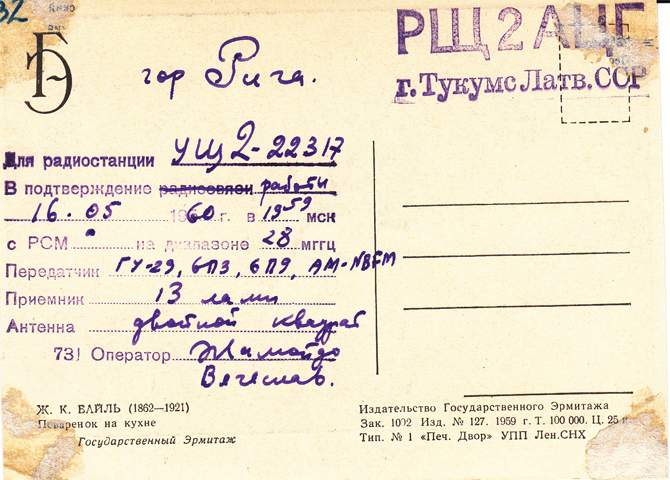 32
РЩ2АЦГ
г. Тукумс Латв. ССР
гор Рига.
Для радиостанции УЩ2-22317
В подтверждение радиосвязи работы
16.05 1960 г. в 19 59 мск
с РСМ на диапазоне 28 мггц
Передатчик ГУ-29, 6П3, 6П9, АМ-NBFM
Приемник 13 ламп
Антенна двойной квадрат
73! Оператор Жамойдо
Вячеслав.
Ж. К. БАЙЛЬ (1862—1921)
Поваренок на кухне
Государственный Эрмитаж
Издательство Государственного Эрмитажа
Зак. 1002 Изд. № 127. 1959 г. Т. 100 000. Ц. 25 к
Тип. № 1 «Печ. Двор» УПП Лен.СНХ